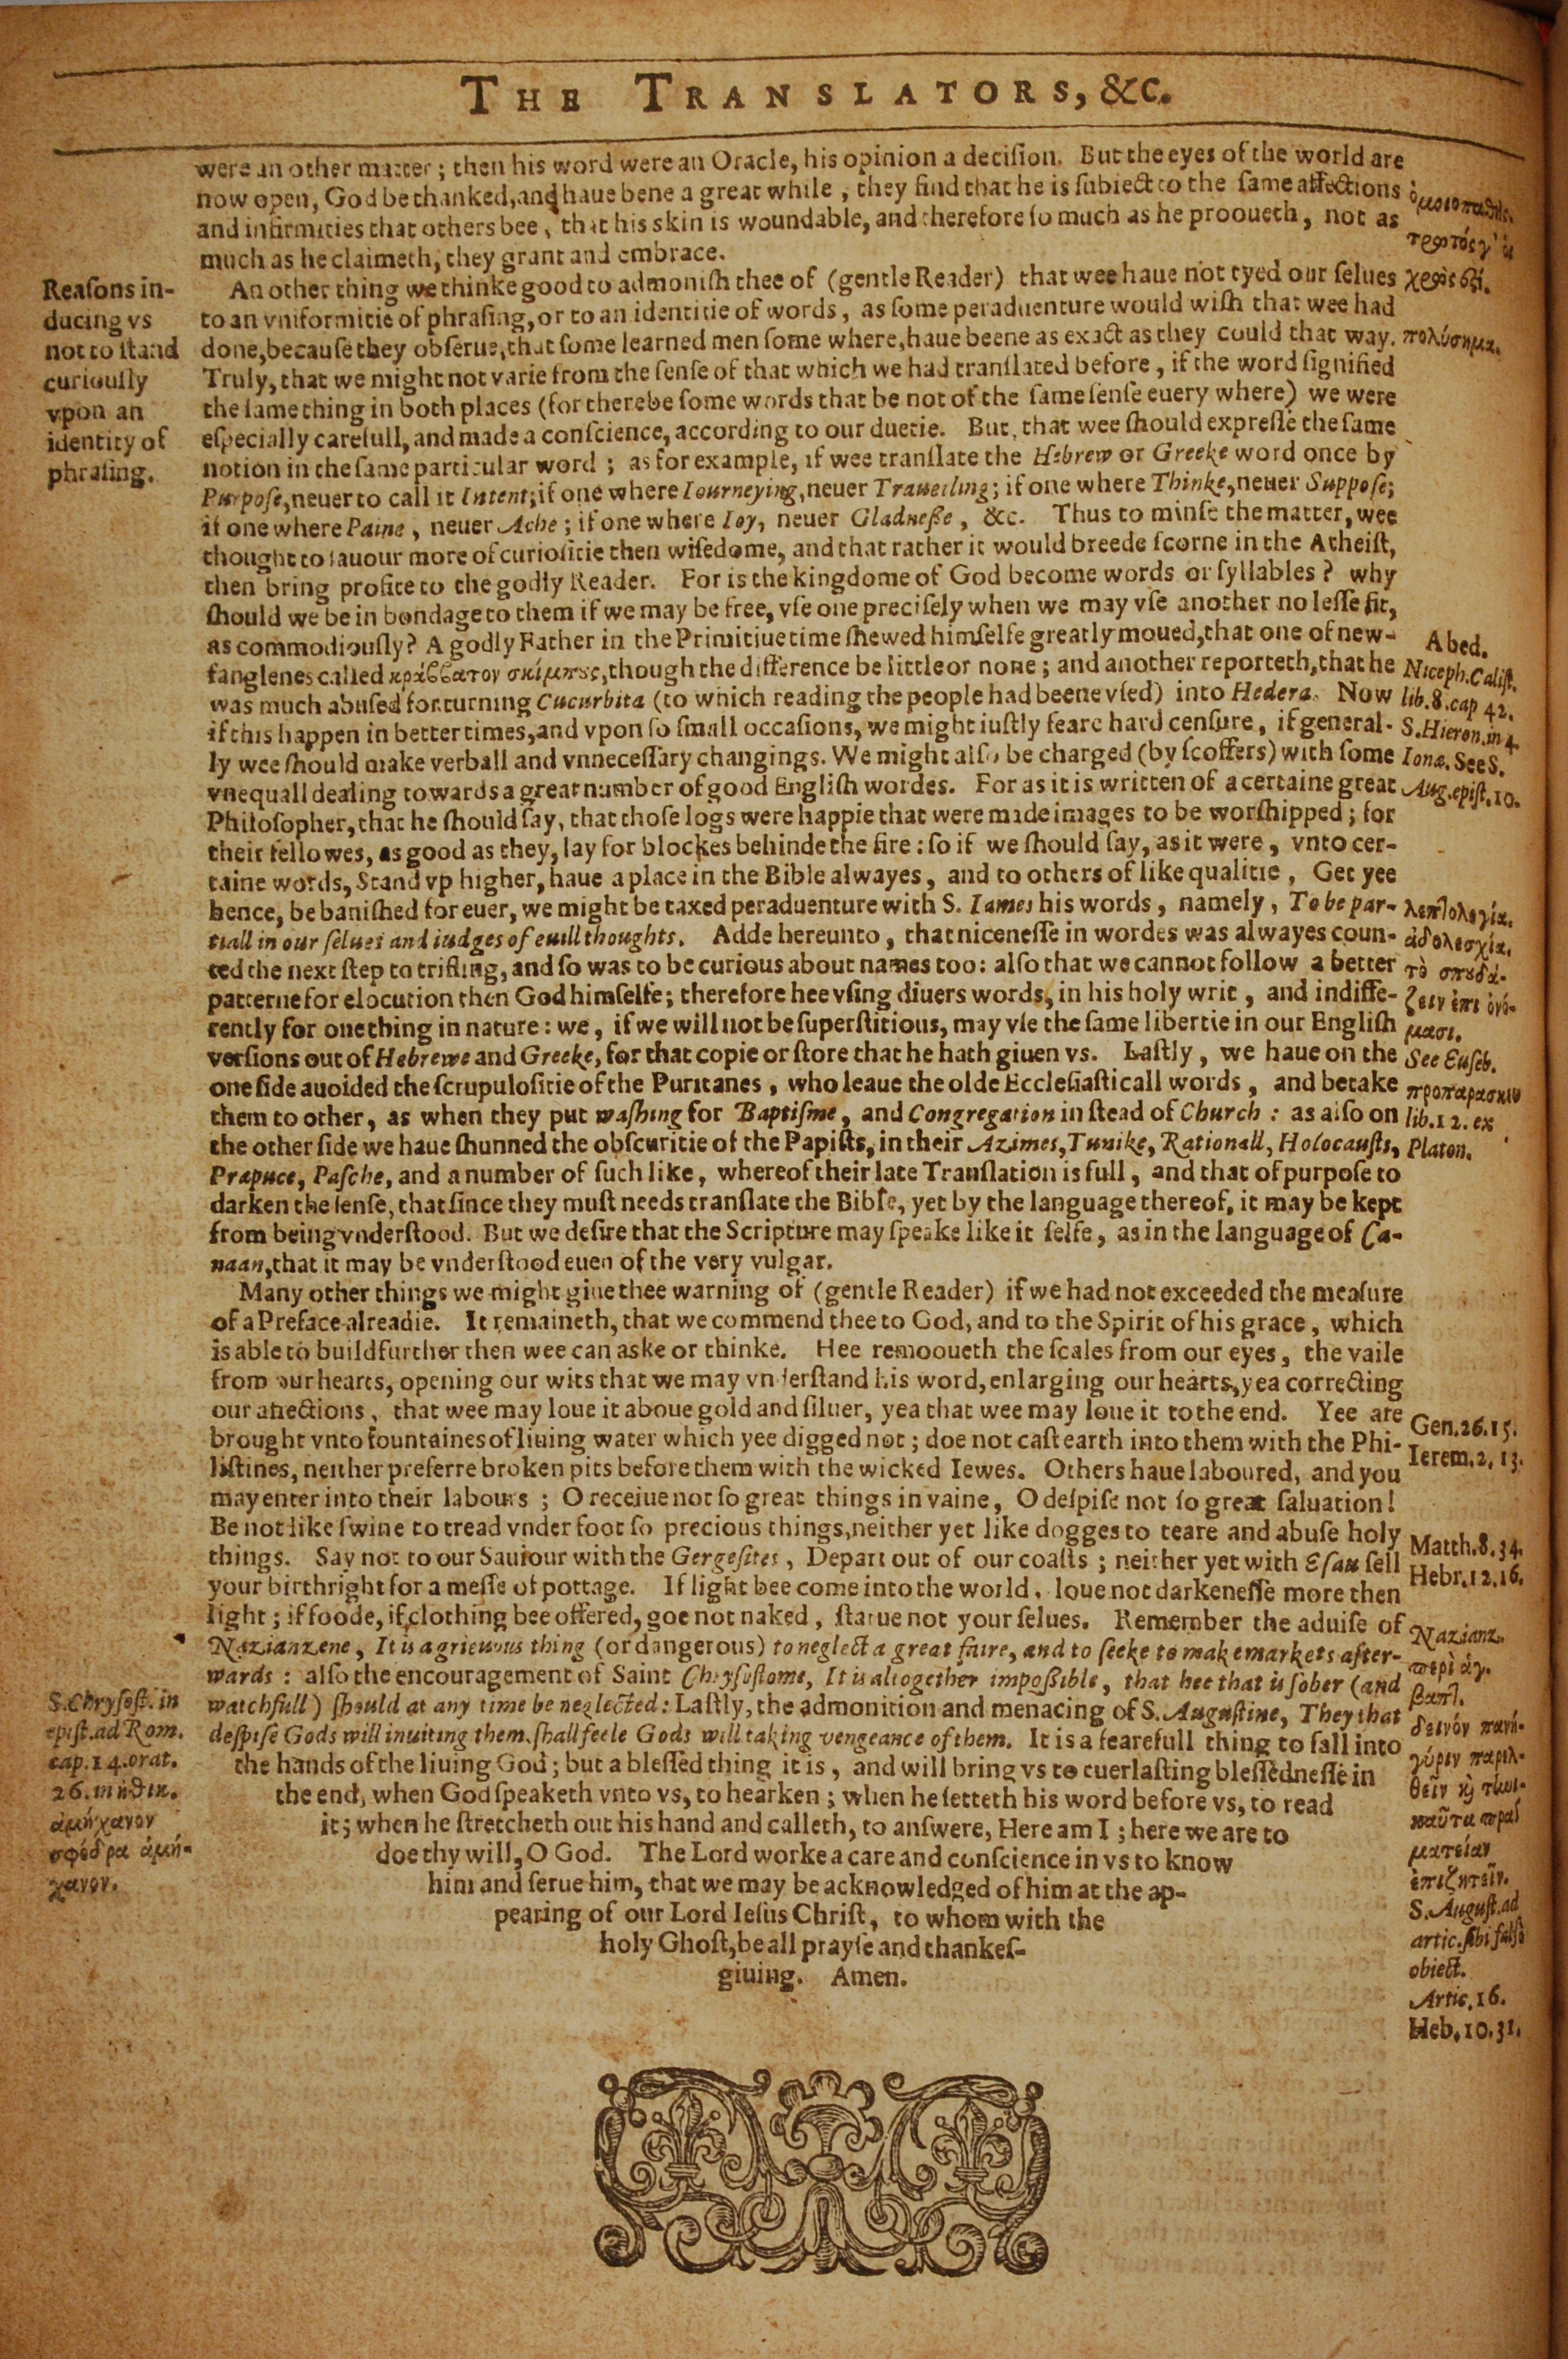 THE TRANSLATORS, &c.
were an other matter; then his word were an Oracle, his opinion a deciſion. But the eyes of the world are
now open, God be thanked, and haue bene a great while, they find that he is ſubiect to the ſame affections
and infirmities that others bee, that his skin is woundable, and therefore ſo much as he prooueth, not as
much as he claimeth, they grant and embrace.
An other thing we thinke good to admoniſh thee of (gentle Reader) that wee haue not tyed our ſelues
to an vniformitie of phraſing, or to an identitie of words, as ſome peraduenture would wiſh that wee had
done, becauſe they obſerue, that ſome learned men ſome where, haue beene as exact as they could that way.
Truly, that we might not varie from the ſenſe of that which we had tranſlated before, if the word ſignified
the ſame thing in both places (for there be ſome words that be not of the ſame ſenſe euery where) we were
eſpecially carefull, and made a conſcience, according to our duetie. But, that wee ſhould expreſſe the ſame
notion in the ſame particular word; as for example, if wee tranſlate the Hebrew or Greeke word once by
Purpoſe, neuer to call it Intent; if one where Iourneying, neuer Traueiling; if one where Thinke, neuer Suppoſe;
if one where Paine, neuer Ache; if one where Ioy, neuer Gladneſſe, &c. Thus to minſe the matter, wee
thought to ſauour more of curioſitie then wiſedome, and that rather it would breede ſcorne in the Atheiſt,
then bring profite to the godly Reader. For is the kingdome of God become words or ſyllables? why
ſhould we be in bondage to them if we may be free, vſe one preciſely when we may vſe another no leſſe fit,
as commodiouſly? A godly Father in the Primitiue time ſhewed himſelfe greatly moued, that one of new-
fanglenes called κράββατον σκίμπους, though the difference be little or none; and another reporteth, that he
was much abuſed for turning Cucurbita (to which reading the people had beene vſed) into Hedera. Now
if this happen in better times, and vpon ſo ſmall occaſions, we might iuſtly feare hard cenſure, if general-
ly wee ſhould make verball and vnneceſſary changings. We might alſo be charged (by ſcoffers) with ſome
vnequall dealing towards a great number of good Engliſh wordes. For as it is written of a certaine great
Philoſopher, that he ſhould ſay, that thoſe logs were happie that were made images to be worſhipped; for
their fellowes, as good as they, lay for blockes behinde the fire: ſo if we ſhould ſay, as it were, vnto cer-
taine words, Stand vp higher, haue a place in the Bible alwayes, and to others of like qualitie, Get yee
hence, be baniſhed for euer, we might be taxed peraduenture with S. Iames his words, namely, To be par-
tiall in our ſelues and iudges of euill thoughts. Adde hereunto, that niceneſſe in wordes was alwayes coun-
ted the next ſtep to trifling, and ſo was to be curious about names too: alſo that we cannot follow a better
patterne for elocution then God himſelfe; therefore hee vſing diuers words, in his holy writ, and indiffe-
rently for one thing in nature: we, if we will not be ſuperſtitious, may vſe the ſame libertie in our Engliſh
verſions out of Hebrewe and Greeke, for that copie or ſtore that he hath giuen vs. Laſtly, we haue on the
one ſide auoided the ſcrupuloſitie of the Puritanes, who leaue the olde Eccleſiaſticall words, and betake
them to other, as when they put waſhing for Baptiſme, and Congregation in ſtead of Church: as alſo on
the other ſide we haue ſhunned the obſcuritie of the Papiſts, in their Azimes, Tunike, Rationall, Holocauſts,
Præpuce, Paſche, and a number of ſuch like, whereof their late Tranſlation is full, and that of purpoſe to
darken the ſenſe, that ſince they muſt needs tranſlate the Bible, yet by the language thereof, it may be kept
from being vnderſtood. But we deſire that the Scripture may ſpeake like it ſelfe, as in the language of Ca-
naan, that it may be vnderſtood euen of the very vulgar.
Many other things we might giue thee warning of (gentle Reader) if we had not exceeded the meaſure
of a Preface alreadie. It remaineth, that we commend thee to God, and to the Spirit of his grace, which
is able to build further then wee can aske or thinke. Hee remooueth the ſcales from our eyes, the vaile
from our hearts, opening our wits that we may vnderſtand his word, enlarging our hearts, yea correcting
our affections, that wee may loue it aboue gold and ſiluer, yea that wee may loue it to the end. Yee are
brought vnto fountaines of liuing water which yee digged not; doe not caſt earth into them with the Phi-
liſtines, neither preferre broken pits before them with the wicked Iewes. Others haue laboured, and you
may enter into their labours; O receiue not ſo great things in vaine, O deſpiſe not ſo great ſaluation!
Be not like ſwine to tread vnder foot ſo precious things, neither yet like dogges to teare and abuſe holy
things. Say not to our Sauiour with the Gergeſites, Depart out of our coaſts; neither yet with Eſau ſell
your birthright for a meſſe of pottage. If light bee come into the world, loue not darkeneſſe more then
light; if foode, if clothing bee offered, goe not naked, ſtarue not your ſelues. Remember the aduiſe of
Nazianzene, It is a grieuous thing (or dangerous) to neglect a great faire, and to ſeeke to make markets after-
wards: alſo the encouragement of Saint Chryſoſtome, It is altogether impoſſible, that hee that is ſober (and
watchfull) ſhould at any time be neglected: Laſtly, the admonition and menacing of S. Auguſtine, They that
deſpiſe Gods will inuiting them, ſhall feele Gods will taking vengeance of them. It is a fearefull thing to fall into
the hands of the liuing God; but a bleſſed thing it is, and will bring vs to euerlaſting bleſſedneſſe in
the end, when God ſpeaketh vnto vs, to hearken; when he ſetteth his word before vs, to read
it; when he ſtretcheth out his hand and calleth, to anſwere, Here am I; here we are to
doe thy will, O God. The Lord worke a care and conſcience in vs to know
him and ſerue him, that we may be acknowledged of him at the ap-
pearing of our Lord Ieſus Chriſt, to whom with the
holy Ghoſt, be all prayſe and thankeſ-
giuing. Amen.
Reaſons in-
ducing vs
not to ſtand
curiouſly
vpon an
identity of
phraſing.
S. Chryſoſt. in
epiſt. ad Rom.
cap. 14. orat.
26. in ἠθικ.
ἀμήχανον
σφόδρα ἀμή-
χανον.
ὁμοιοπαθὴς.
πολύσημα.
A bed.
Niceph. Caliſt.
lib. 8. cap 42.
S. Hieron. in 4.
Ionæ. See S.
Aug. epiſt. 10.
λεπτολογία.
ἀδολεσχία.
τὸ σπουδά-
ζειν ἐπὶ ὀνό-
μασι.
See Euſeb.
προπαρασκευ
lib. 12. ex
Platon.
Gen. 26. 15.
Ierem. 2. 13.
Matth. 8. 34.
Hebr. 12. 16.
Nazianz.
περὶ ἁγ.
βαπτ.
δεινὸν πανή-
γυριν παρελ-
θεῖν
ματείαν
ἐπιζητεῖν.
S. Auguſt. ad
artic. ſibi falſò
obiect.
Artic. 16.
Heb. 10. 31.